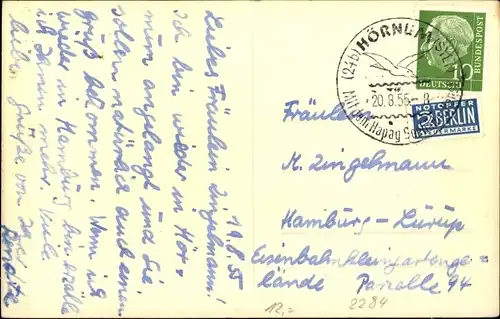 19.8.55
Liebes Fräulein Zingelmann!
Ich bin wieder in Hör-
num angelangt und Sie
sollen natürlich auch einen
gruß bekommen. Wenn ich
wieder in Hamburg bin erzähle
ich Ihnen mehr. Viele
liebe Grüße von
HÖRNUM (SYLT)
(24b)
20.8.55 - 8
10
DEUTSCHE
BUNDESPOST
NOTOPFER
2 BERLIN
STEUERMARKE
Fräulein
K. Zingelmann
Hamburg-Lurup
Eisenbahnkleingartenge-
lände Parzelle 94
12,- 2284